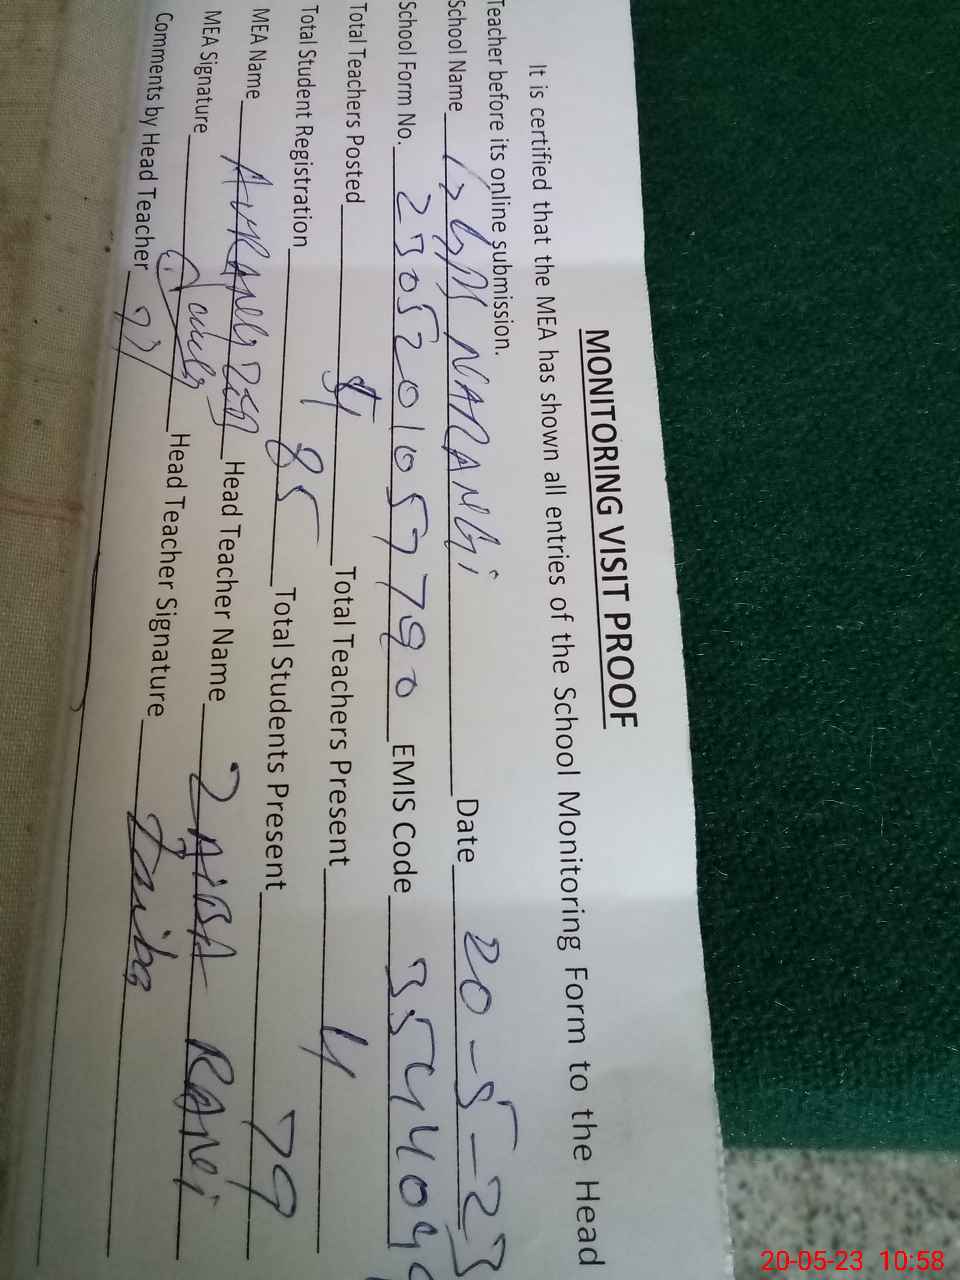 MONITORING VISIT PROOF
It is certified that the MEA has shown all entries of the School Monitoring Form to the Head
Teacher before its online submission.
School Name NARANGi Date 20-5-23
School Form No. EMIS Code
Total Teachers Posted Total Teachers Present 4
Total Student Registration 85 Total Students Present 79
MEA Name Head Teacher Name ZAIBA RANi
MEA Signature Head Teacher Signature Zaiba
Comments by Head Teacher
20-05-23 10:58